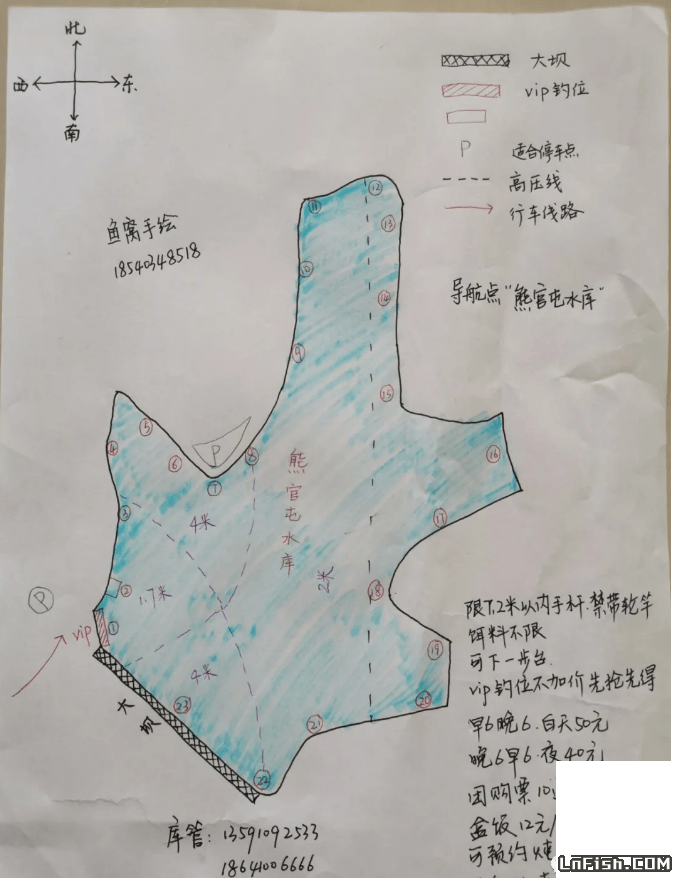 北
西 东
南
大坝
vip钓位
P 适合停车点
高压线
行车线路
鱼窝手绘
18540348518
导航点“熊官屯水库”
⑪ ⑫
⑬
⑩
⑭
⑨
⑮
⑤
④ ⑥ P ⑧ ⑯
⑦
熊官屯水库
③ 4米 ⑰
P ② 1.7米 2米 ⑱
vip ①
4米 ⑲
大坝 ㉓ ⑳
㉑
㉒
限7.2米以内手杆.禁带轮竿
饵料不限
可下一步台.
vip钓位不加价先抢先得
早6晚6.白天50元
晚6早6.夜40元
团购票10
盒饭12元/
可预约
库管：13591092533
18641006666
LnFish.com